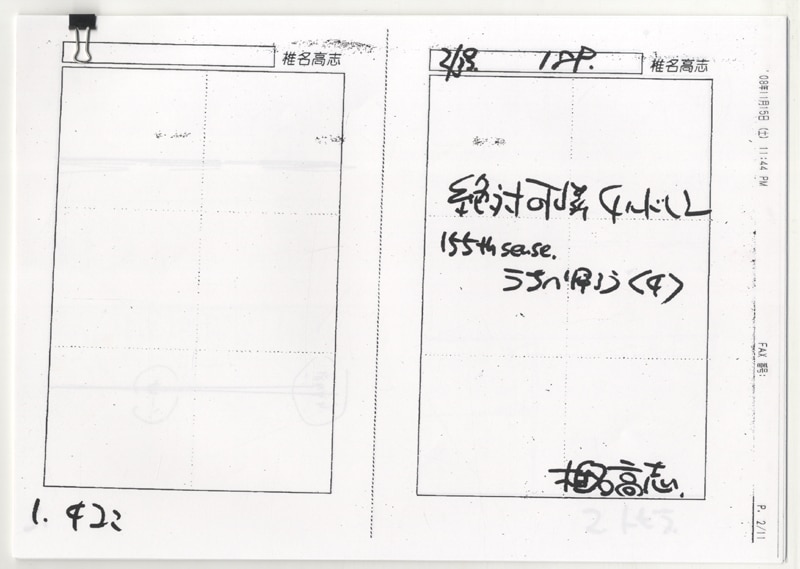 椎名高志
椎名高志
絶対可憐チルドレン
155th sense.
うちへ帰ろう〈4〉
椎名高志
'08年11月15日(土) 11:44 PM
FAX 番号:
P. 2/11